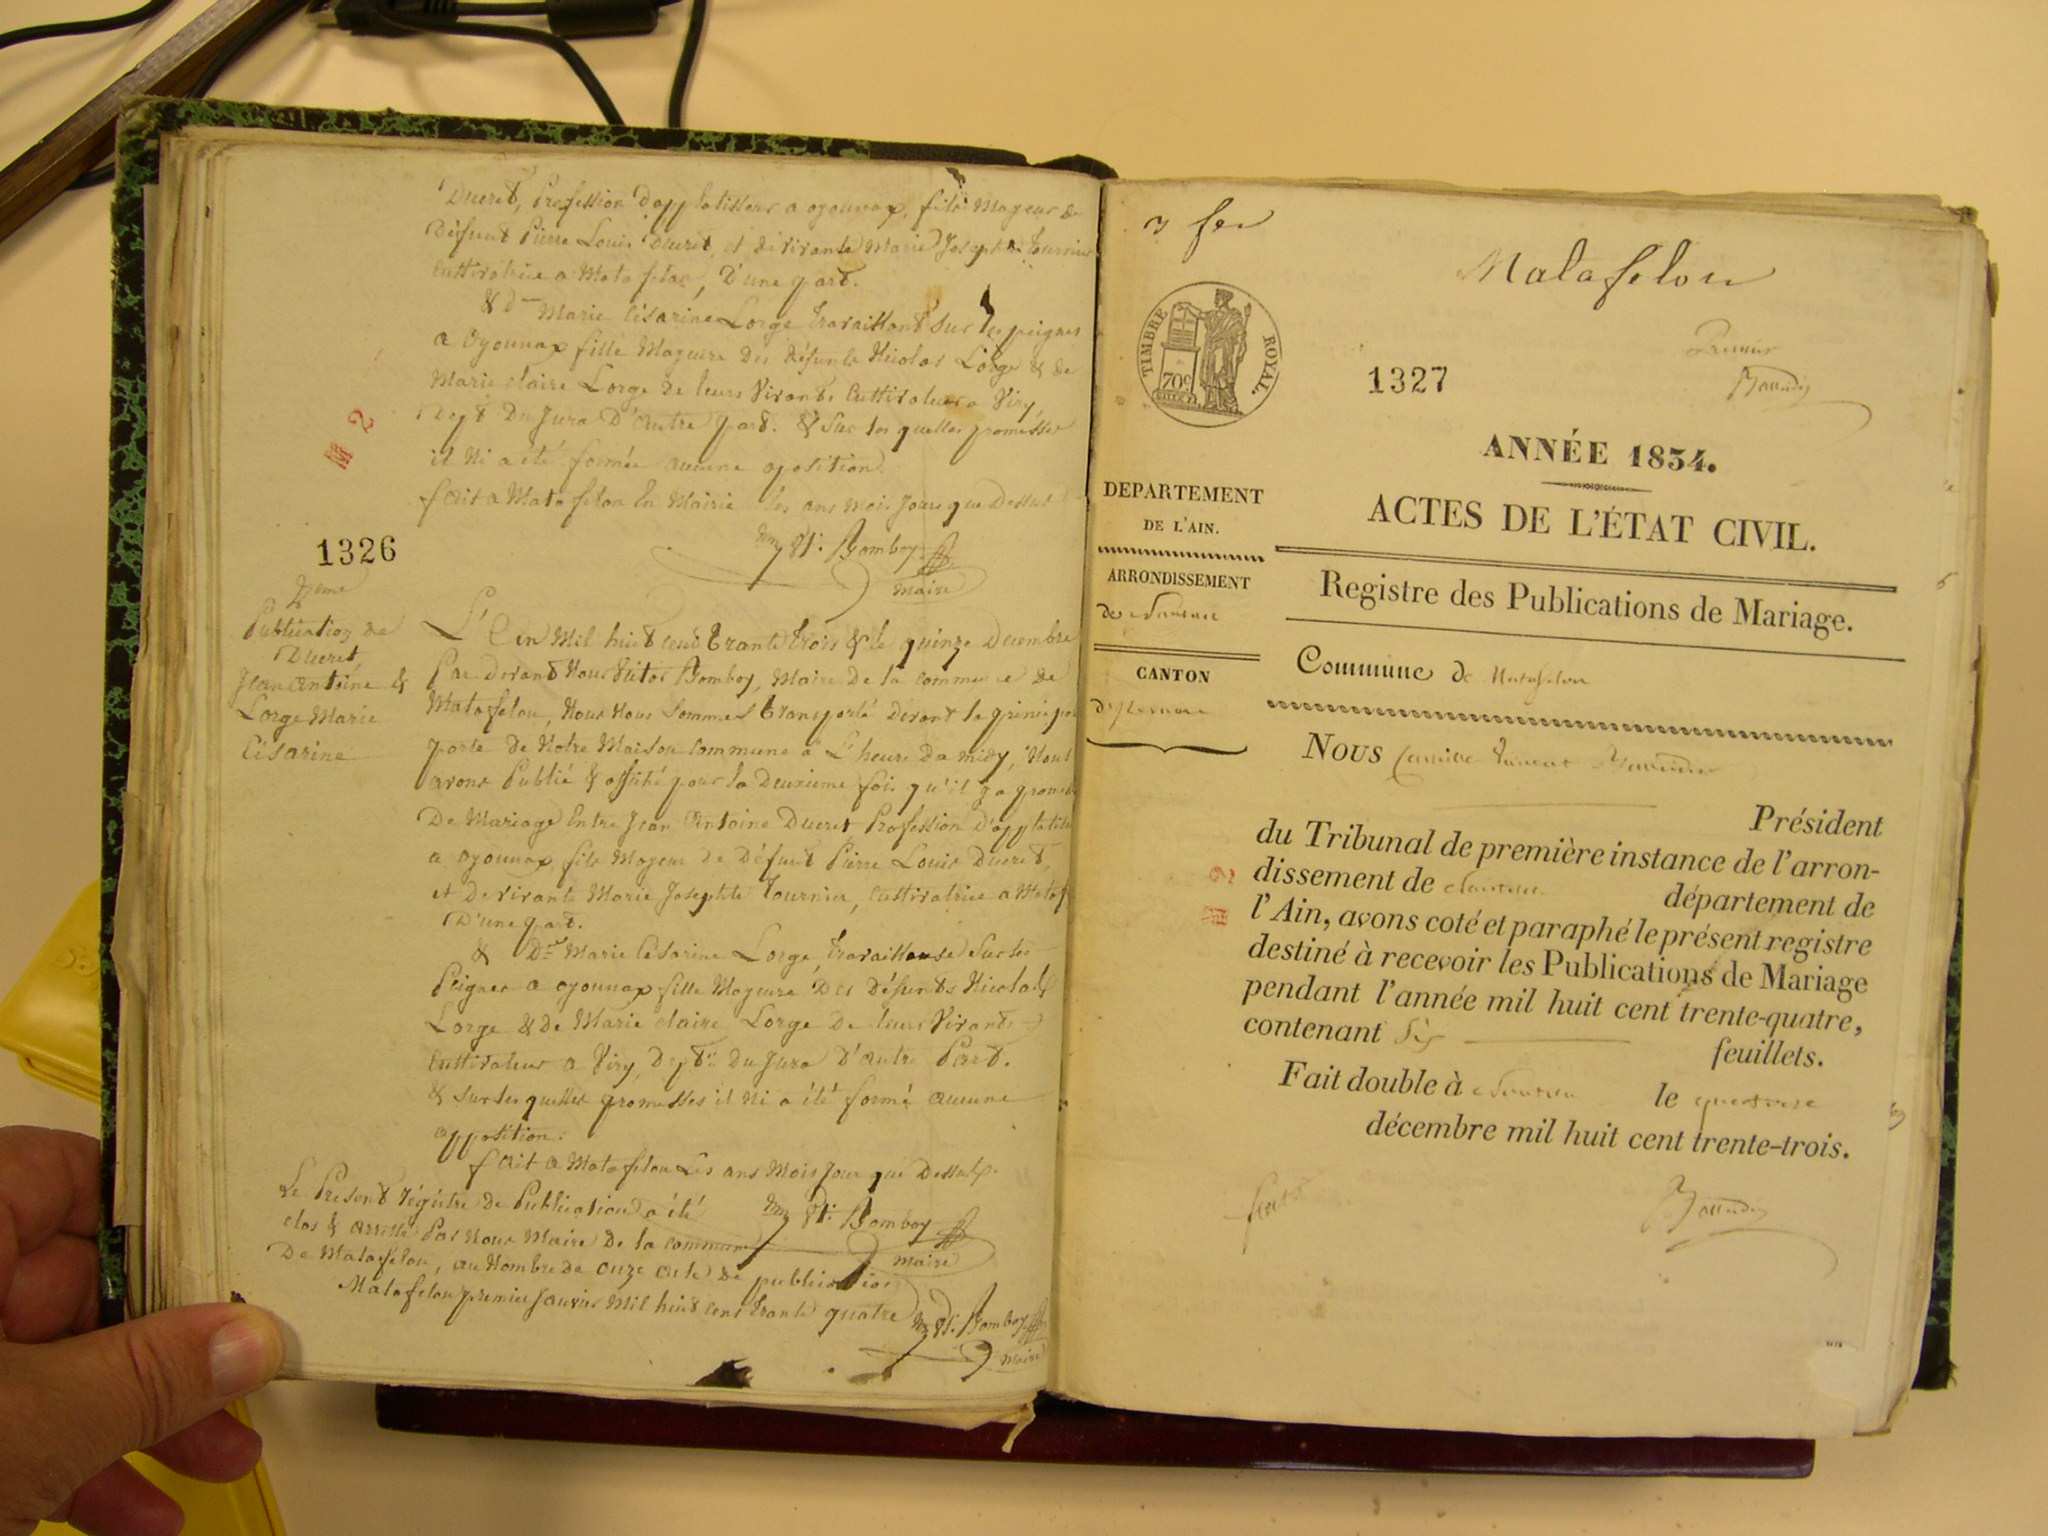 Ducret, Profession D'applatisseur a oyonnax, fils Mageur de
Défunt Pierre Louis Ducret, et de vivante Marie Josephte Tournier
Cultivatrice a Matafelon, D'une part.
& Dme Marie Césarine Lorge travaillant sur les peignes
a Oyonnax fille Mageure Des Défunts Nicolas Lorge & de
Marie claire Lorge de leurs Vivants Cultivateurs a Viry,
Dept Du Jura D'autre part. & Sur les quelles promesses
il Ni a été formée aucune oposition.
fait a Matafelon En Mairie les ans mois Jours que Dessus
Bomboy
maire
M 2
1326
2eme
Publication de
Ducret
Jean antoine &
Lorge Marie
Césarine
L'an Mil huit cent trante trois & le quinze Decembre
Par Devant Nous Victor Bomboy, Maire De la commune de
Matafelon, Nous Nous Sommes transporté Devant la principe
porte De Notre Maison commune a L'heure Da midy, Nous
avons Publié & affiché pour la Deuxieme fois qu'il y a promes
De Mariage Entre Jean Antoine Ducret Profession D'applatiss
a oyonnax, fils Mageur de Défunt Pierre Louis Ducret,
et De vivante Marie Josephte Tournier, Cultivatrice a Mataf
D'une part.
& Dme Marie Césarine Lorge, travailleuse Sur les
Peignes a oyonnax fille Mageure Des Défunts Nicolas
Lorge & de Marie claire Lorge De leurs Vivants
Cultivateurs a Viry, Dept Du Jura D'autre Part.
& Sur les quelles promesses il Ni a été formé aucune
opposition.
fait a Matafelon Les ans Mois Jour que Dessus.
Le Présent régistre de Publication a été
clos & arrêté Par Nous Maire De la commune
De Matafelon, au Nombre de onze acte de publication
Matafelon premier Janvier Mil huit cent trante quatre
Bomboy
maire
Bomboy
maire
Matafelon
TIMBRE ROYAL.
70c
1327
Premier
ANNÉE 1834.
ACTES DE L'ÉTAT CIVIL.
DEPARTEMENT
DE L'AIN.
ARRONDISSEMENT
de Nantua
CANTON
d'Izernore
Registre des Publications de Mariage.
Commune de Matafelon
NOUS
Président
du Tribunal de première instance de l'arron-
dissement de Nantua département de
l'Ain, avons coté et paraphé le présent registre
destiné à recevoir les Publications de Mariage
pendant l'année mil huit cent trente-quatre,
contenant Six feuillets.
Fait double à Nantua le quatorze
décembre mil huit cent trente-trois.
M 2